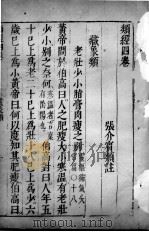 類經四卷
張介賓類註
藏象類
老壯少小脂膏肉瘦之別
黃帝問於伯高曰人之肥瘦大小寒溫有老壯
少小別之奈何
伯高對曰人年五
十已上為老二十已上為壯十八已上為少六
歲已上為小黃帝曰何以度知其肥瘦伯高曰